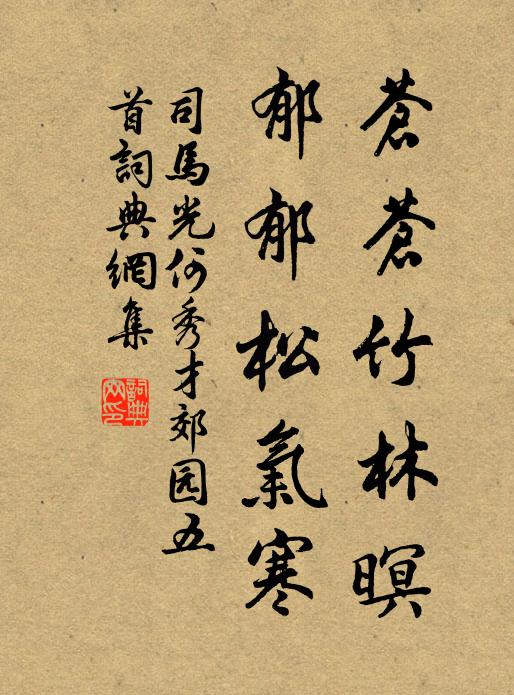 蒼蒼竹林暝
郁郁松氣寒
司馬光何秀才郊园五
首詞典網集
詞典